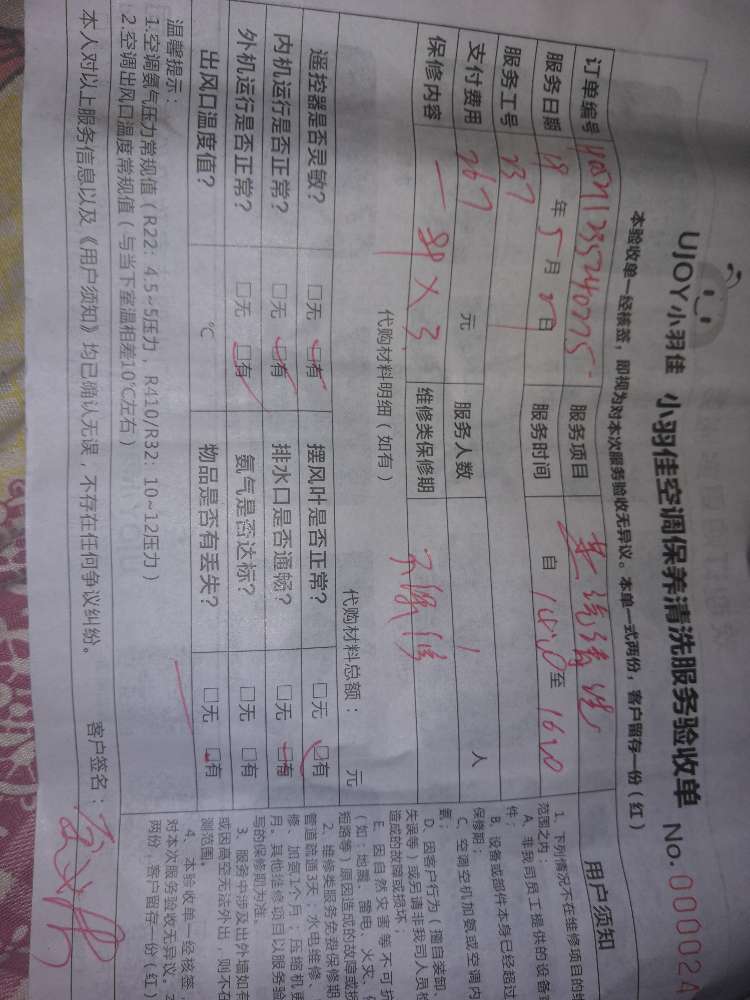 UJOY小羽佳 小羽佳空调保养清洗服务验收单 No.000024
本验收单一经核签，即视为对本次服务验收无异议。本单一式两份，客户留存一份（红）
订单编号 服务项目
服务日期 18年5月 日 服务时间 自 至
服务工号 237
支付费用 267 元 服务人数 1 人
保修内容 维修类保修期
代购材料明细（如有） 代购材料总额： 元
遥控器是否灵敏？ □无 □有 摆风叶是否正常？ □无 □有
内机运行是否正常？ □无 □有 排水口是否通畅？ □无 □有
外机运行是否正常？ □无 □有 氨气是否达标？ □无 □有
出风口温度值？ ℃ 物品是否有丢失？ □无 □有
温馨提示：
1.空调氨气压力常规值（R22：4.5~5压力，R410/R32：10~12压力）
2.空调出风口温度常规值（与当下室温相差10℃左右）
本人对以上服务信息以及《用户须知》均已确认无误，不存在任何争议纠纷。
客户签名：
用户须知
1、下列情况不在维修项目的
范围之内：
A、非我司员工提供的设备
件；
B、设备或部件本身已经超过
保修期；
C、空调空机加氨或空调内
氨；
D、因客户行为（擅自装卸、
失误等）或另请非我司人员
造成的故障或损坏；
E、因自然灾害等不可抗
（如：地震、雷电、火灾、
短路等）原因造成的故障或
2、维修类服务免费保修期
管道疏通3天；水电维修、
修、加氨1个月；压缩机
月。其他维修项目以服务验
写的保修期为准。
3、服务中涉及出外墙如
或因高空无法外出，则不在
测范围。
4、本验收单一经核签，
对本次服务验收无异议。
两份，客户留存一份（红）